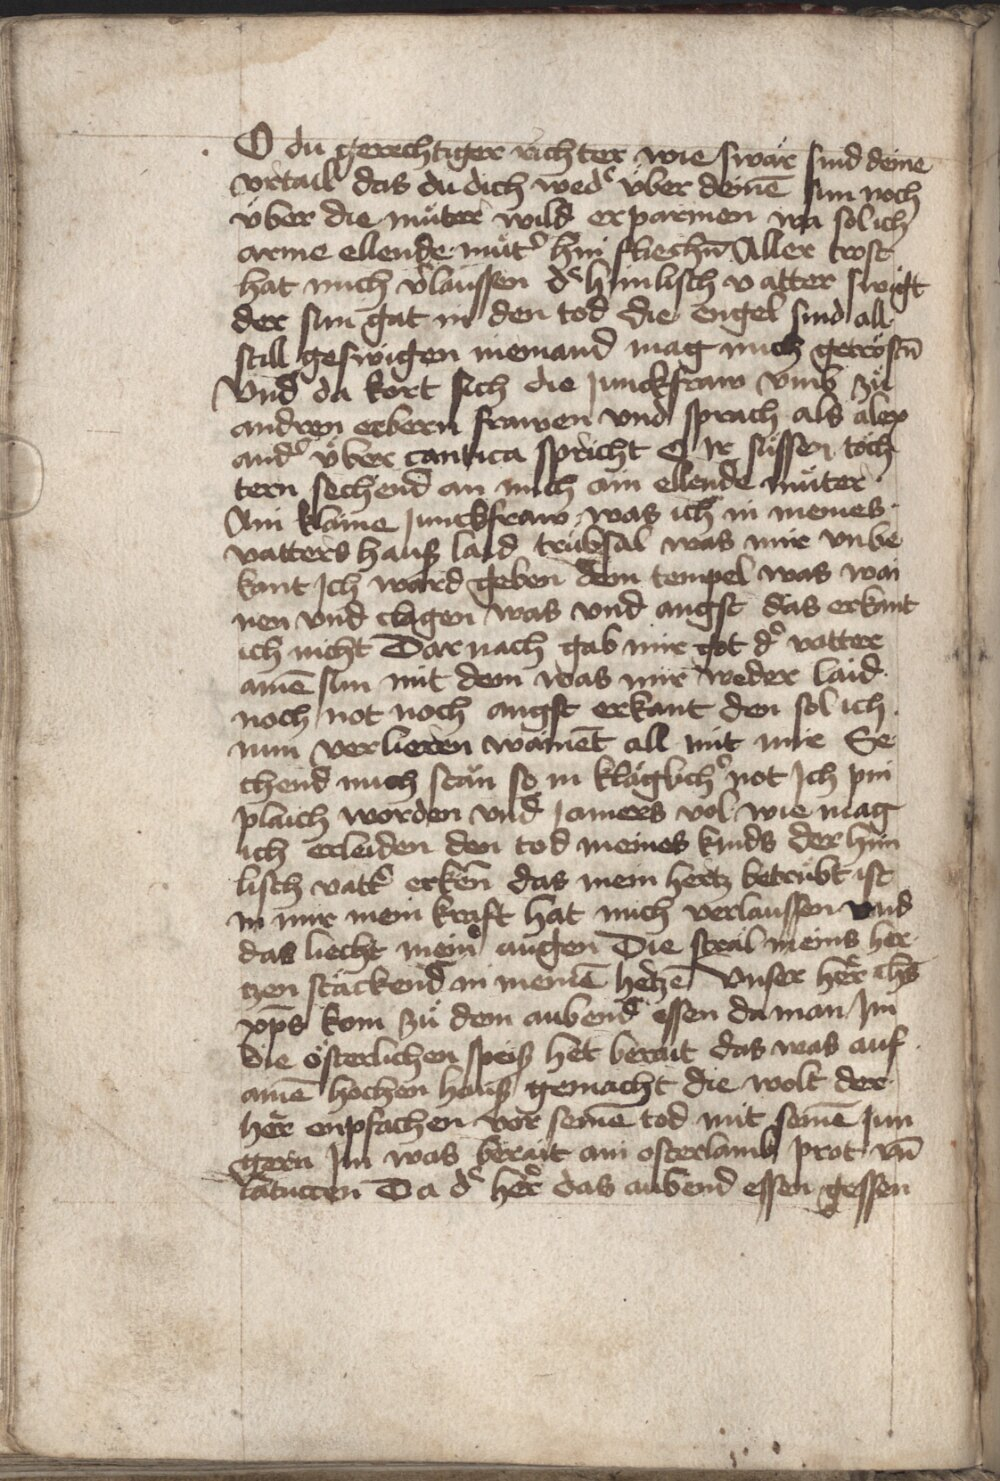 O du gerechtiger richter wie swär sind deine
vrtail das du dich wedˀ v̈ber deinē sun noch
v̈ber die mu̍ter wild erparmen wa sol ich
arme ellende mu̍tˀ hin fliechn̄ Aller trost
hat mich vˀlaussen dˀ himlisch vatter swigt
der sun gät in den tod die engel sind all
still geswigen niemand mag mich getröstn̄
Vnd da kort sich die junckfraw vmb zu̍
andren erbern frawen vnd sprach als alex
andˀ v̈ber cantica spricht O Ir süssen töch
tern sechend an mich ain ellende mu̍ter
Ain klaine junckfraw was ich in meines
vatters hauß laid trübsal was mir vnbe
kant Ich ward geben dem tempel was wai
nen vnd clagen was vnd angst das erkant
ich nicht Dar nach gab mir got dˀ vatter
ainē sun mit dem was mir weder laid
noch not noch angst erkant den sol ich
nun verlieren wainēt all mit mir Se
chend mich stän so in kläglichˀ not Ich pin
plaich worden vnd jamers vol wie mag
ich erleiden den tod meines kinds der him
lisch vattˀ erkēn das mein hertz betrübt ist
in mir mein kraft hat mich verlaussen vnd
das liecht meinˀ augen Die sträl meins her
tzen stäckend in meinē hertzē Vnser herˀ ihs̄
xp̄s kom zu̍ dem aubend essen da man Im
die österlichen speiß het berait das was auf
ainē hochen hauß gemacht die wolt der
herˀ enpfachen vor seinē tod mit seinē jun
gern Im was berait ain osterlamb prot vn̄
latucten Da dˀ herˀ das aubend essen gessen